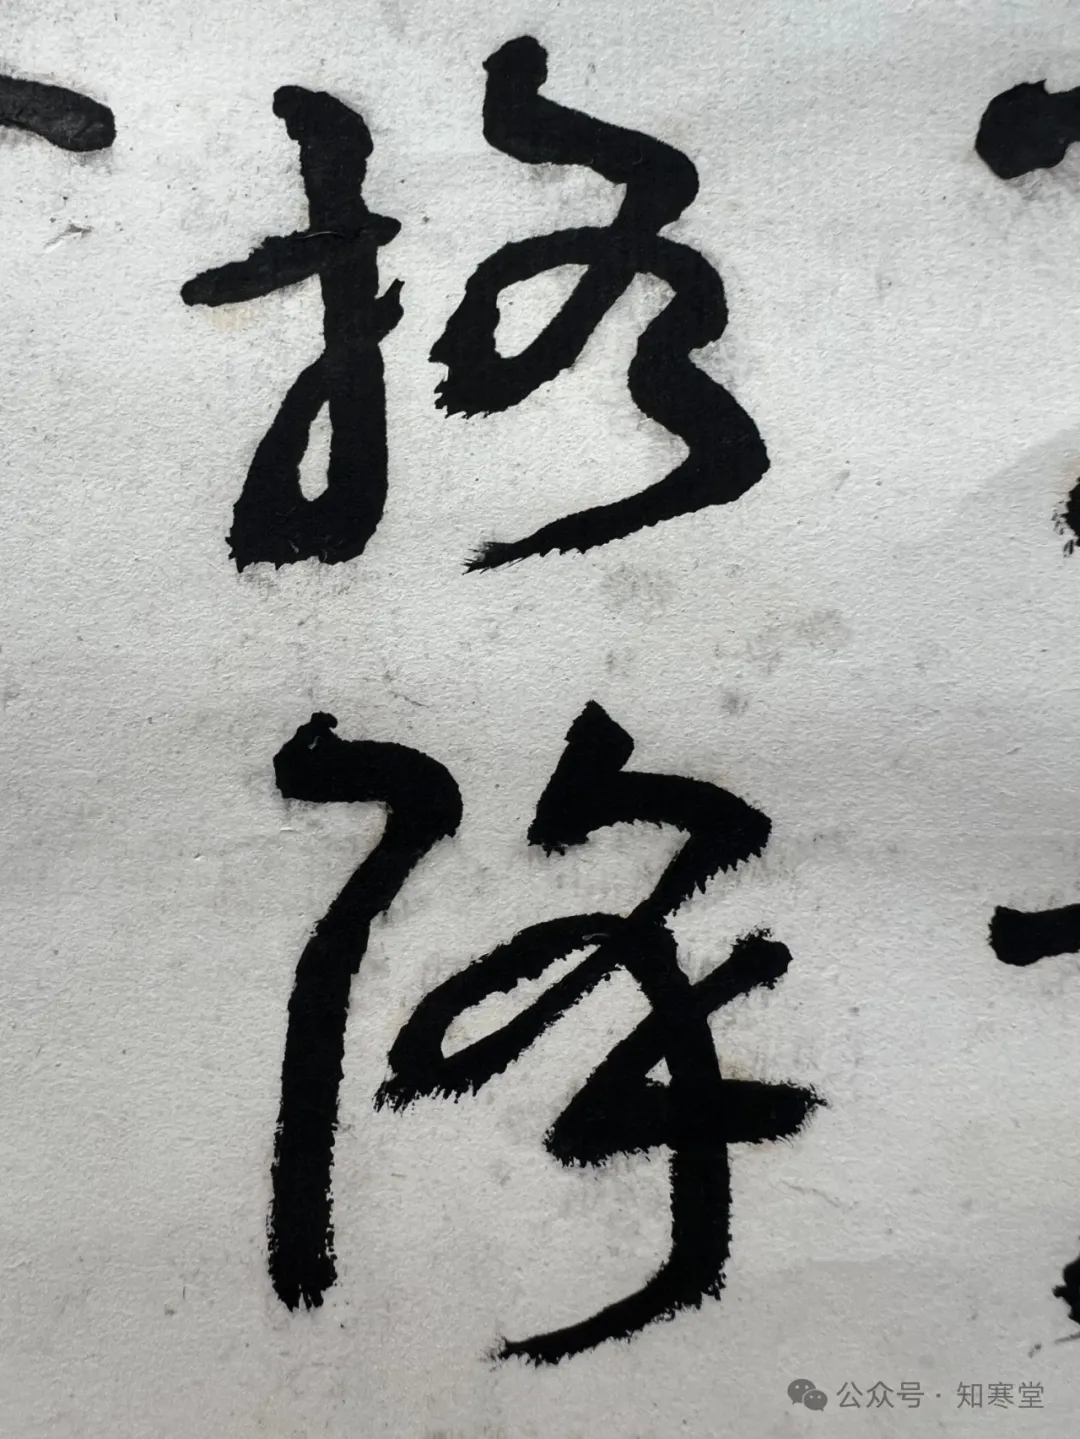 格
降
公众号 · 知寒堂